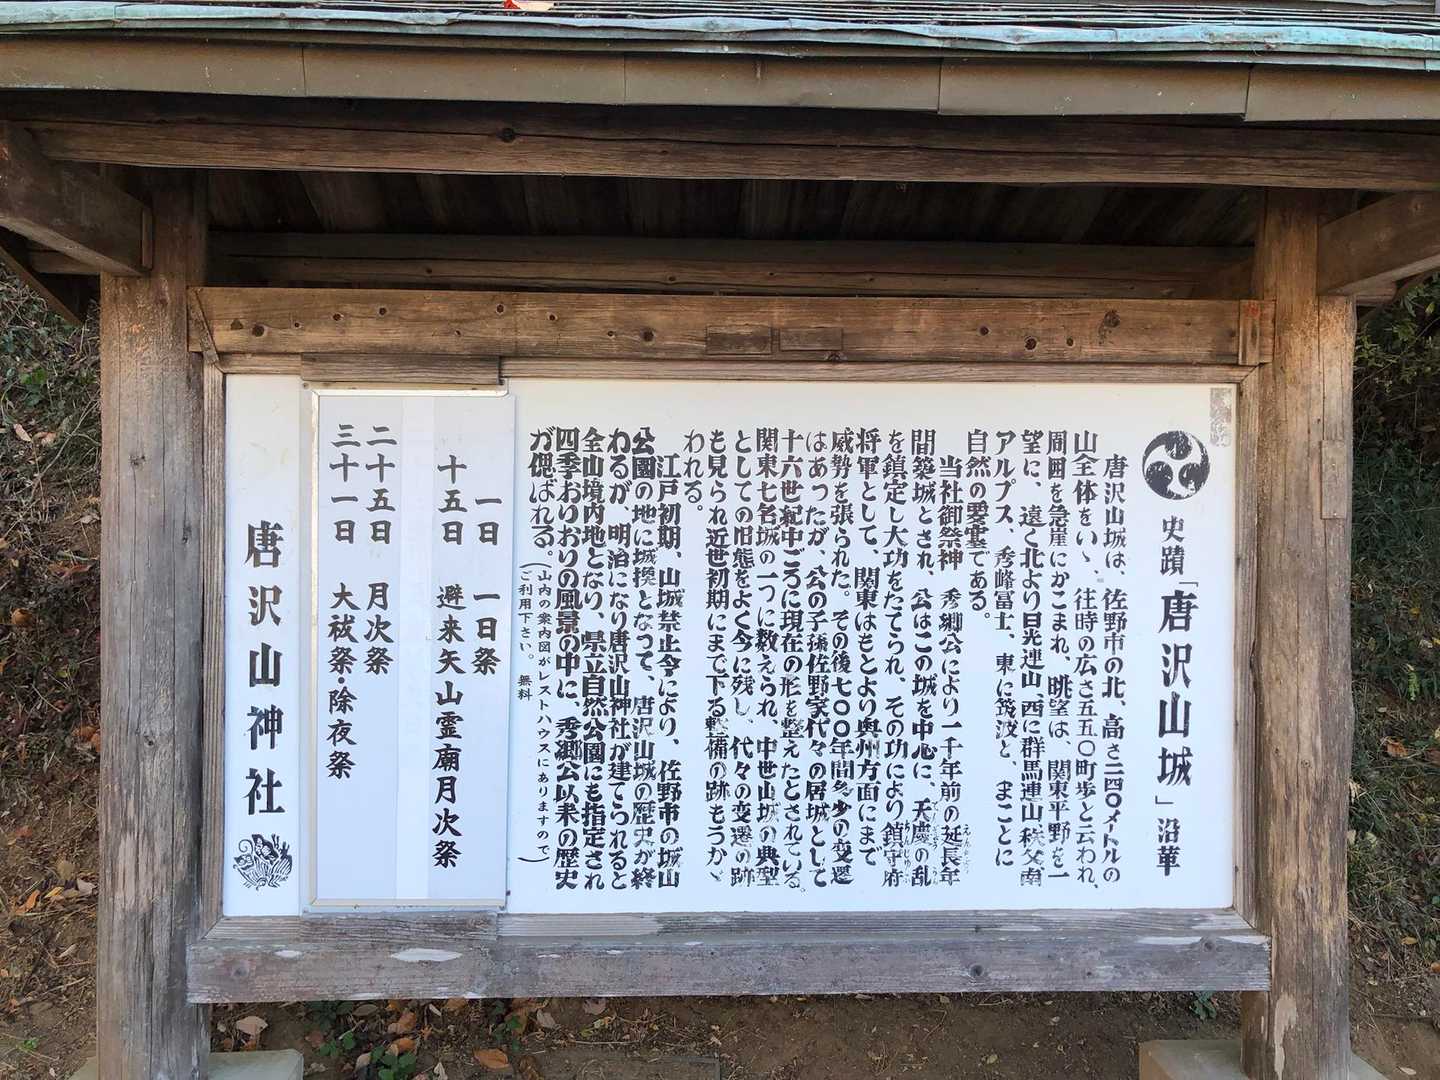 史蹟「唐沢山城」沿革
唐沢山城は、佐野市の北、高さ二四〇メートルの
山全体をいゝ、往時の広さ五五〇町歩と云われ、
周囲を急崖にかこまれ、眺望は、関東平野を一
望に、遠く北より日光連山、西に群馬連山、秩父、南
アルプス、秀峰富士、東に筑波と、まことに
自然の要害である。
当社御祭神 秀郷公により一千年前の延長年
間築城とされ、公はこの城を中心に、天慶の乱
を鎮定し大功をたてられ、その功により鎮守府
将軍として、関東はもとより奥州方面にまで
威勢を張られた。その後七〇〇年間多少の変遷
はあったが、公の子孫佐野家代々の居城として
十六世紀中ごろに現在の形を整えたとされている。
関東七名城の一つに数えられ、中世山城の典型
としての旧態をよく今に残し、代々の変遷の跡
も見られ近世初期にまで下る整備の跡もうかゞ
われる。
江戸初期、山城禁止令により、佐野市の城山
公園の地に城換となって、唐沢山城の歴史が終
わるが、明治になり唐沢山神社が建てられると
全山境内地となり、県立自然公園にも指定され
四季おりおりの風景の中に、秀郷公以来の歴史
が偲ばれる。
(山内の案内図がレストハウスにありますので
ご利用下さい。 無料)
一日 一日祭
十五日 避来矢山霊廟月次祭
二十五日 月次祭
三十一日 大祓祭・除夜祭
唐沢山神社